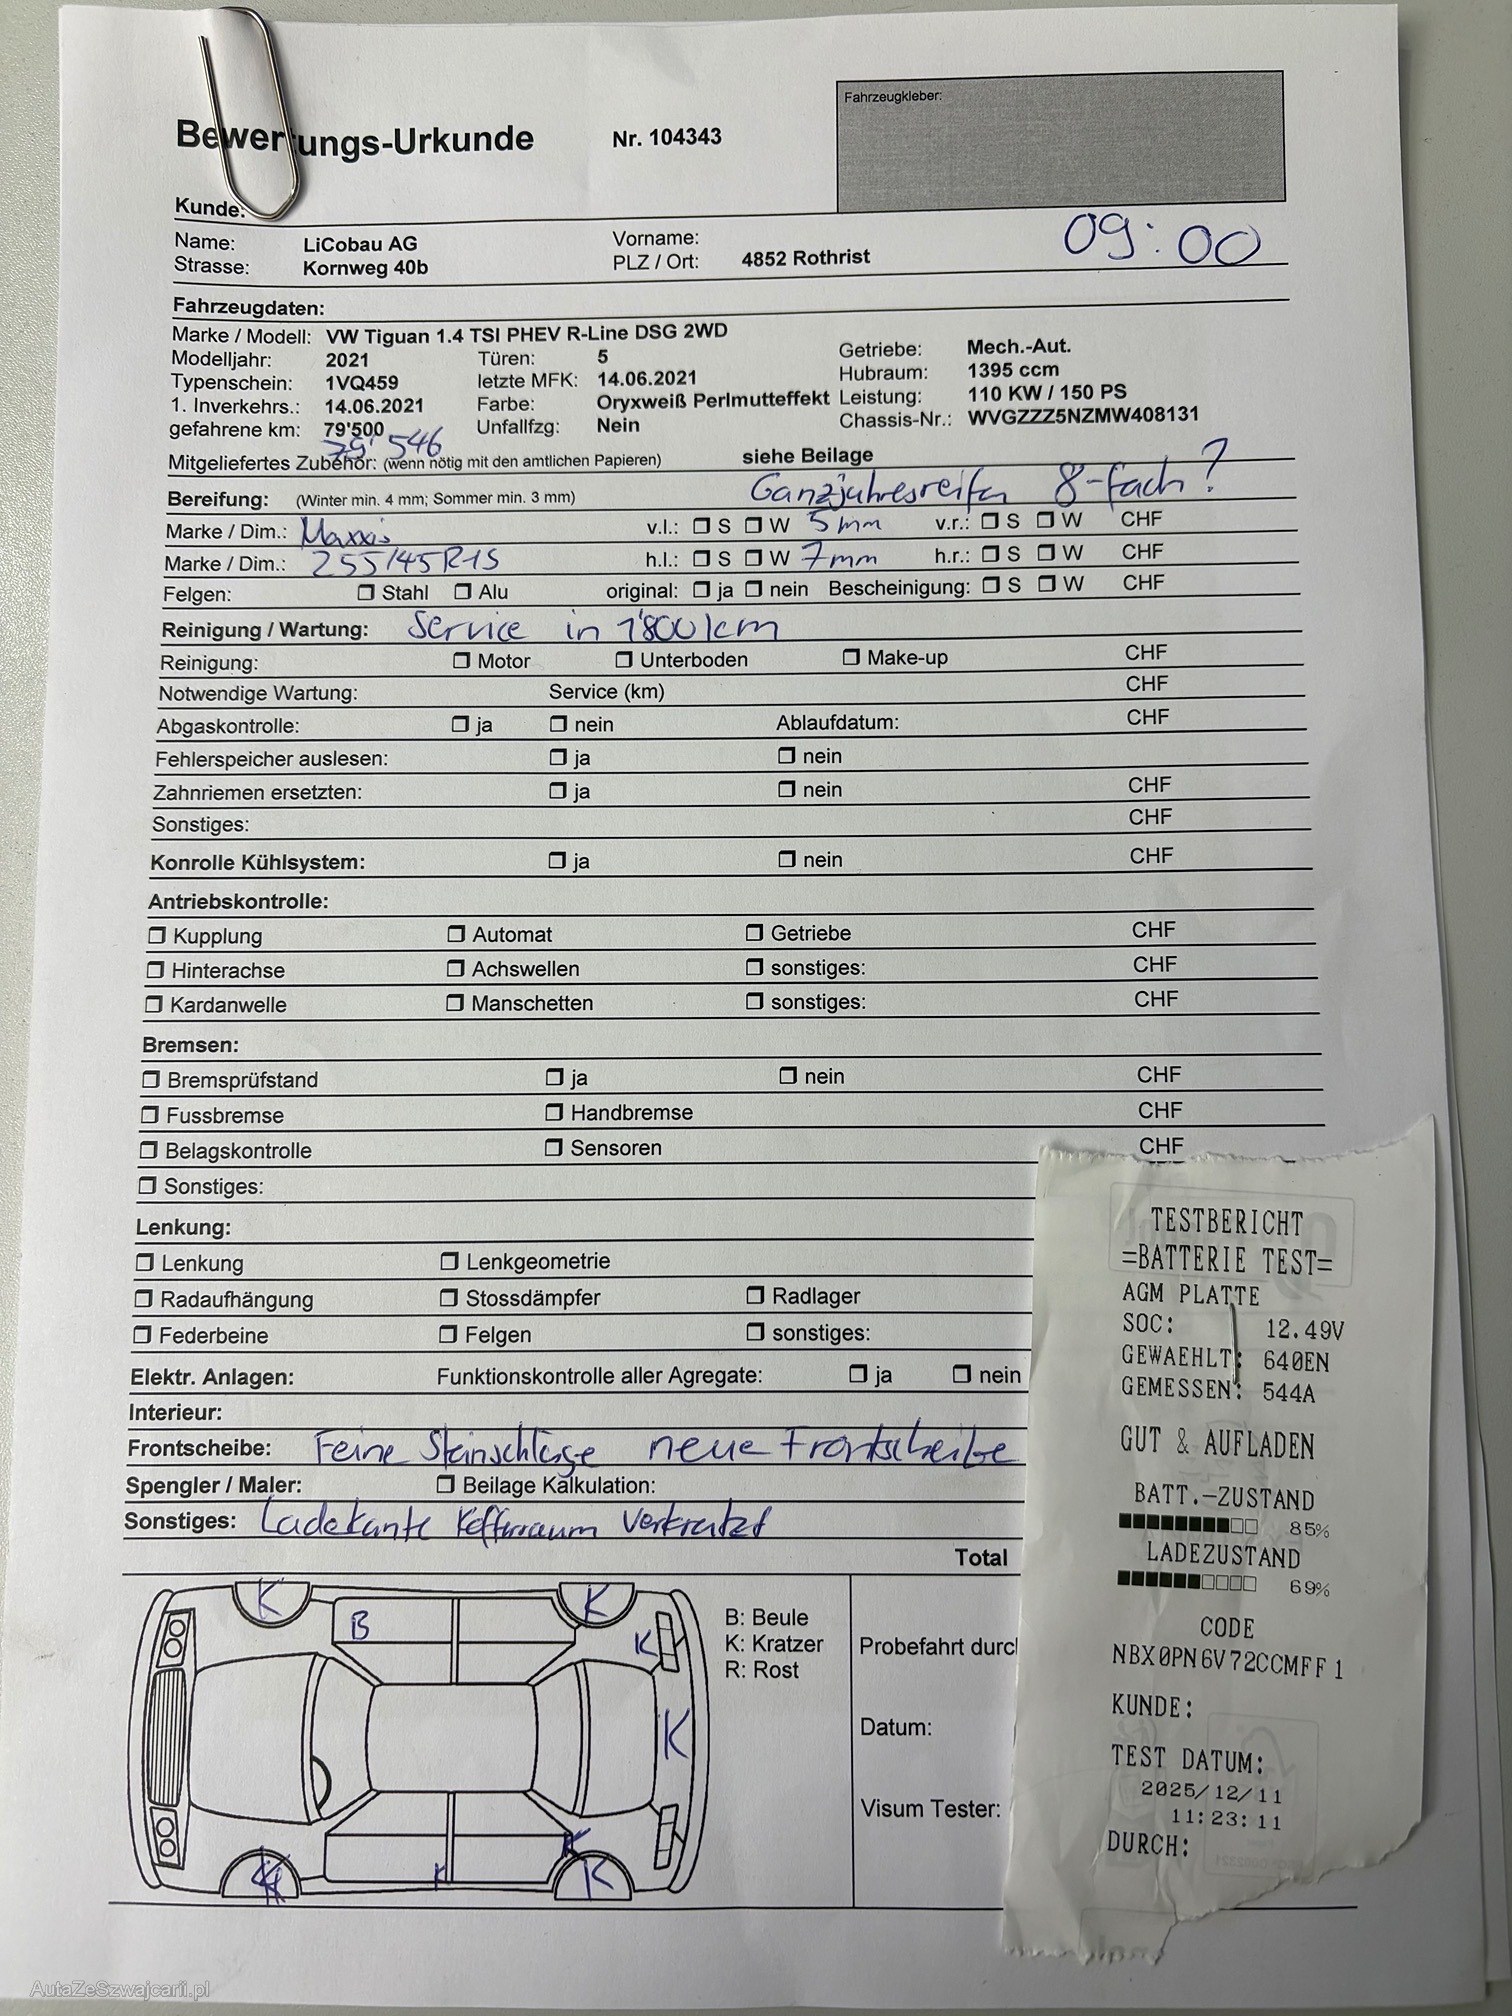 Fahrzeugkleber:
Bewertungs-Urkunde Nr. 104343
Kunde:
09:00
Name: LiCobau AG Vorname:
Strasse: Kornweg 40b PLZ / Ort: 4852 Rothrist
Fahrzeugdaten:
Marke / Modell: VW Tiguan 1.4 TSI PHEV R-Line DSG 2WD
Modelljahr: 2021 Türen: 5 Getriebe: Mech.-Aut.
Typenschein: 1VQ459 letzte MFK: 14.06.2021 Hubraum: 1395 ccm
1. Inverkehrs.: 14.06.2021 Farbe: Oryxweiß Perlmutteffekt Leistung: 110 KW / 150 PS
gefahrene km: 79'500 Unfallfzg: Nein Chassis-Nr.: WVGZZZ5NZMW408131
79'546
Mitgeliefertes Zubehör: (wenn nötig mit den amtlichen Papieren) siehe Beilage
Bereifung: (Winter min. 4 mm; Sommer min. 3 mm) Ganzjahresreifen 8-fach?
Marke / Dim.: Maxxis v.l.: S W 5mm v.r.: S W CHF
Marke / Dim.: 255/45R19 h.l.: S W 7mm h.r.: S W CHF
Felgen: Stahl Alu original: ja nein Bescheinigung: S W CHF
Reinigung / Wartung: Service in 1'800km
Reinigung: Motor Unterboden Make-up CHF
Notwendige Wartung: Service (km) CHF
Abgaskontrolle: ja nein Ablaufdatum: CHF
Fehlerspeicher auslesen: ja nein
Zahnriemen ersetzten: ja nein CHF
Sonstiges: CHF
Konrolle Kühlsystem: ja nein CHF
Antriebskontrolle:
Kupplung Automat Getriebe CHF
Hinterachse Achswellen sonstiges: CHF
Kardanwelle Manschetten sonstiges: CHF
Bremsen:
Bremsprüfstand ja nein CHF
Fussbremse Handbremse CHF
Belagskontrolle Sensoren CHF
Sonstiges:
Lenkung:
Lenkung Lenkgeometrie
Radaufhängung Stossdämpfer Radlager
Federbeine Felgen sonstiges:
Elektr. Anlagen: Funktionskontrolle aller Agregate: ja nein
Interieur:
Frontscheibe: Feine Steinschläge neue Frontscheibe
Spengler / Maler: Beilage Kalkulation:
Sonstiges: Ladekante Kofferraum verkratzt
Total
K K
B
K
K
K
K K
K K
B: Beule
K: Kratzer
R: Rost
Probefahrt durc
Datum:
Visum Tester:
TESTBERICHT
=BATTERIE TEST=
AGM PLATTE
SOC: 12.49V
GEWAEHLT: 640EN
GEMESSEN: 544A
GUT & AUFLADEN
BATT.-ZUSTAND
85%
LADEZUSTAND
69%
CODE
NBX0PN6V72CCMFF1
KUNDE:
TEST DATUM:
2025/12/11
11:23:11
DURCH:
AutaZeSzwajcarii.pl